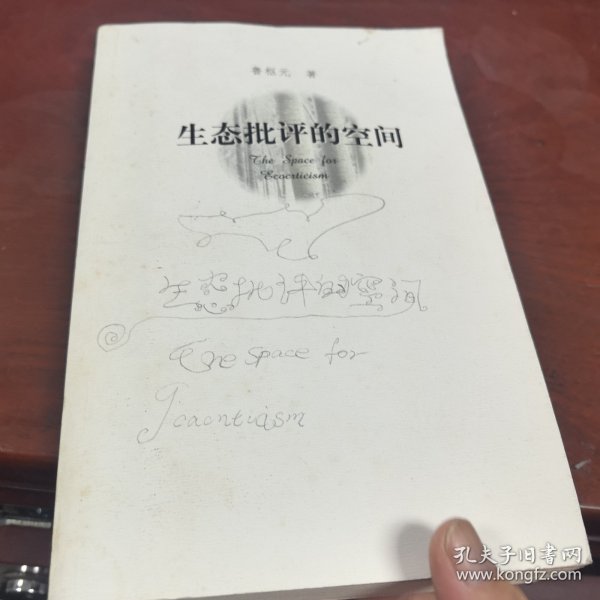 鲁枢元 著
生态批评的空间
The Space for
Ecocriticism
生态批评的空间
The space for
Jcacntiasm
孔夫子旧书网
www.kongfz.com